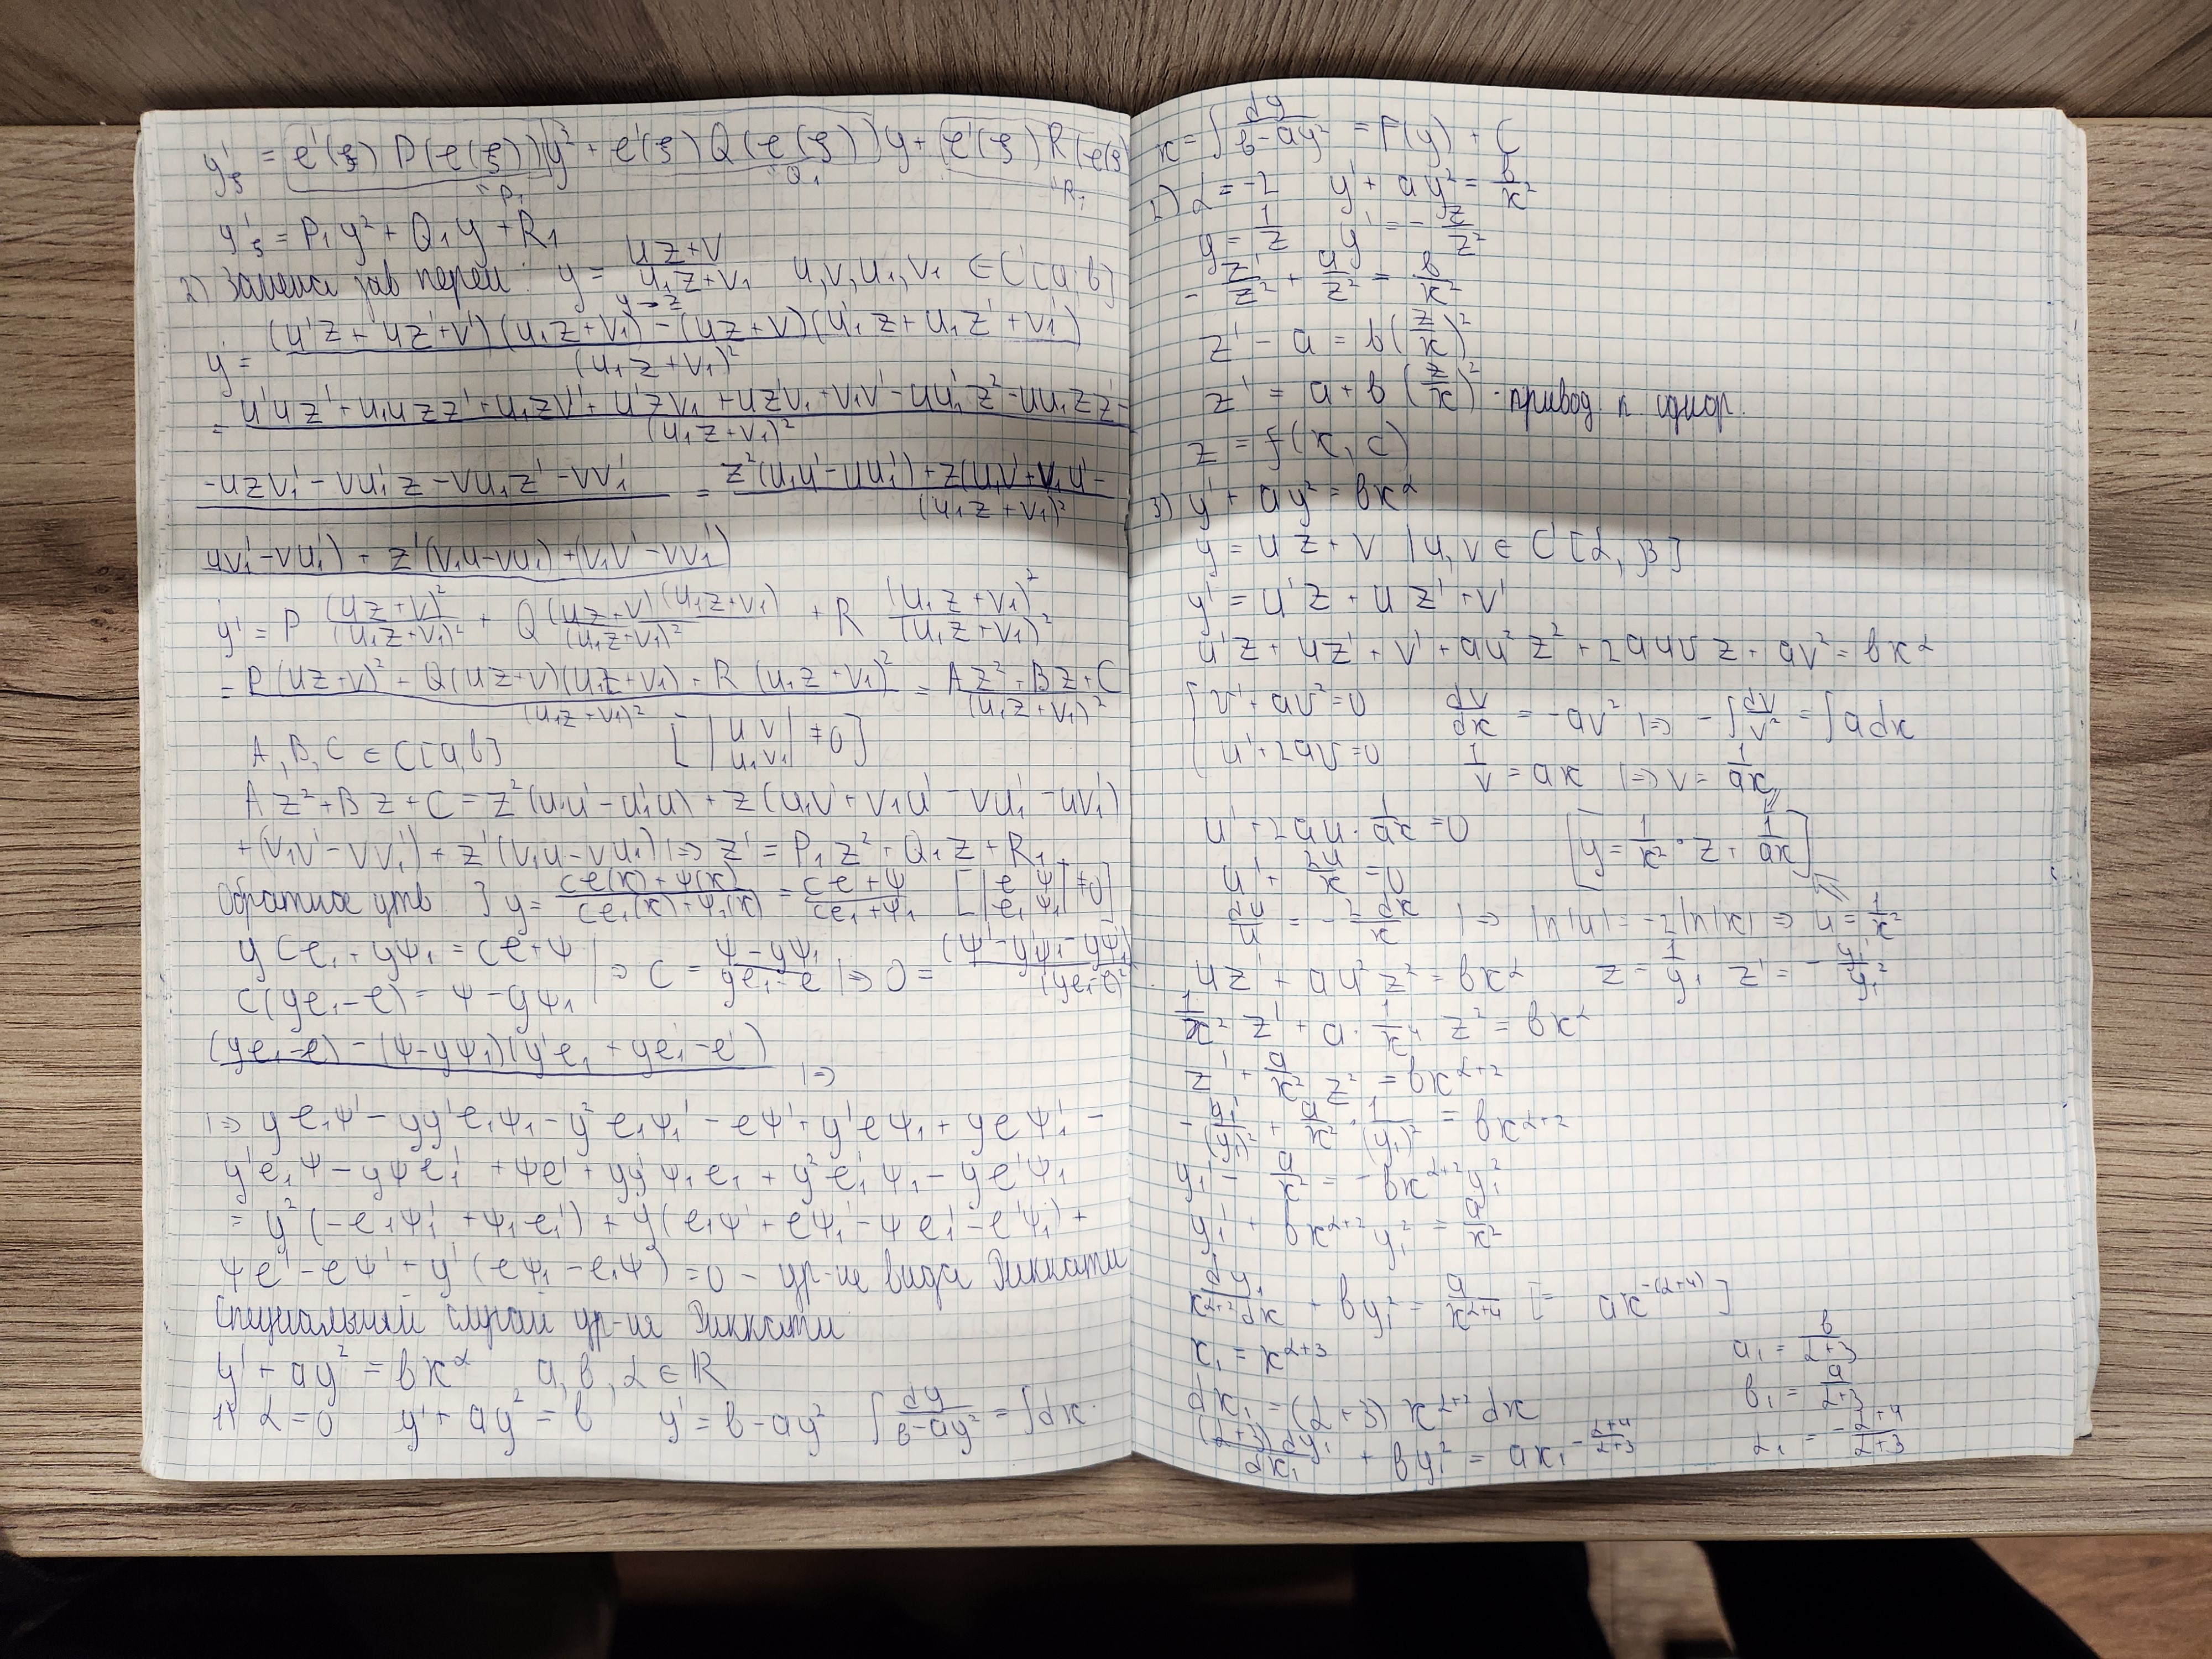 y'_ξ = φ'(ξ) P(φ(ξ)) y² + φ'(ξ) Q(φ(ξ)) y + φ'(ξ) R(φ(ξ)
"P₁ "Q₁ "R₁
y'_ξ = P₁y² + Q₁y + R₁
2) Замена зав перем: y = (uz+v)/(u₁z+v₁) u, v, u₁, v₁ ∈ C'[a,b]
y→z
y' = ((u'z + uz' + v')(u₁z+v₁) − (uz+v)(u₁'z + u₁z' + v₁'))/(u₁z+v₁)²
= (u'uz' + u₁uzz' + u₁zv' + u'zv₁ + uz'v₁ + v₁v' − uu₁'z² − uu₁zz' −)/(u₁z+v₁)²
−uzv₁' − vu₁'z − vu₁z' − vv₁' = (z²(u₁u' − uu₁') + z(u₁v' + v₁u' −)/(u₁z+v₁)²
uv₁' − vu₁') + z'(v₁u − vu₁) + (v₁v' − vv₁')
y' = P (uz+v)²/(u₁z+v₁)² + Q (uz+v)(u₁z+v₁)/(u₁z+v₁)² + R (u₁z+v₁)²/(u₁z+v₁)²
= (P(uz+v)² + Q(uz+v)(u₁z+v₁) + R(u₁z+v₁)²)/(u₁z+v₁)² = (Az² + Bz + C)/(u₁z+v₁)²
A, B, C ∈ C[a,b] [ |u v; u₁ v₁| ≠ 0 ]
Az² + Bz + C = z²(u₁u' − u₁'u) + z(u₁v' + v₁u' − vu₁' − uv₁')
+ (v₁v' − vv₁') + z'(v₁u − vu₁) |⇒ z' = P₁z² + Q₁z + R₁
Обратное утв ] y = (Cφ(x) + ψ(x))/(Cφ₁(x) + ψ₁(x)) = (Cφ + ψ)/(Cφ₁ + ψ₁) [ |φ ψ; φ₁ ψ₁| ≠ 0 ]
yCφ₁ + yψ₁ = Cφ + ψ
C(yφ₁ − φ) = ψ − yψ₁ | ⇒ C = (ψ − yψ₁)/(yφ₁ − φ) |⇒ 0 = (ψ' − y'ψ₁ − yψ₁')/(yφ₁ − φ)²
(yφ₁ − φ) − (ψ − yψ₁)(y'φ₁ + yφ₁' − φ') |⇒
|⇒ yφ₁ψ' − yy'φ₁ψ₁ − y²φ₁ψ₁' − φψ' + y'φψ₁ + yφψ₁' −
y'φ₁ψ − yψφ₁' + ψφ' + yy'ψ₁φ₁ + y²φ₁'ψ₁ − yφ'ψ₁
= y²(−φ₁ψ₁' + ψ₁φ₁') + y(φ₁ψ' + φψ₁' − ψφ₁' − φ'ψ₁) +
ψφ' − φψ' + y'(φψ₁ − φ₁ψ) = 0 − ур-ие вида Риккати
Специальный случай ур-ия Риккати
y' + ay² = bx^α a, b, α ∈ ℝ
1) α = 0 y' + ay² = b y' = b − ay² ∫ dy/(b−ay²) = ∫dx
x = ∫ dy/(b−ay²) = F(y) + C
2) α = −2 y' + ay² = b/x²
y = 1/z y' = −z'/z²
− z'/z² + a/z² = b/x²
z' − a = b(z/x)²
z' = a + b (z/x)² · привод. к однор.
z = f(x, c)
3) y' + ay² = bx^α
y = uz + v | u, v ∈ C'[α, β]
y' = u'z + uz' + v'
u'z + uz' + v' + au²z² + 2auvz + av² = bx^α
{ v' + av² = 0 dv/dx = −av² |⇒ −∫ dv/v² = ∫adx
u' + 2av = 0 1/v = ax |⇒ v = 1/ax
u' + 2au · 1/ax = 0 [ y = 1/x² · z + 1/ax ]
u' + 2u/x = 0
du/u = −2 dx/x |⇒ ln|u| = −2ln|x| ⇒ u = 1/x²
uz' + au²z² = bx^α z = 1/y₁ z' = − y₁'/y₁²
1/x² z' + a · 1/x⁴ z² = bx^α
z' + a/x² z² = bx^(α+2)
− y₁'/(y₁)² + a/x² · 1/(y₁)² = bx^(α+2)
y₁' − a/x² = −bx^(α+2) y₁²
y₁' + bx^(α+2) y₁² = a/x²
dy₁/(x^(α+2)dx) + by₁² = a/x^(α+4) [= ax^(−(α+4))]
x₁ = x^(α+3) a₁ = b/(α+3)
dx₁ = (α+3) x^(α+2) dx b₁ = a/(α+3)
(α+3)dy₁/dx₁ + by₁² = ax₁^(−(α+4)/(α+3)) α₁ = −(α+4)/(α+3)